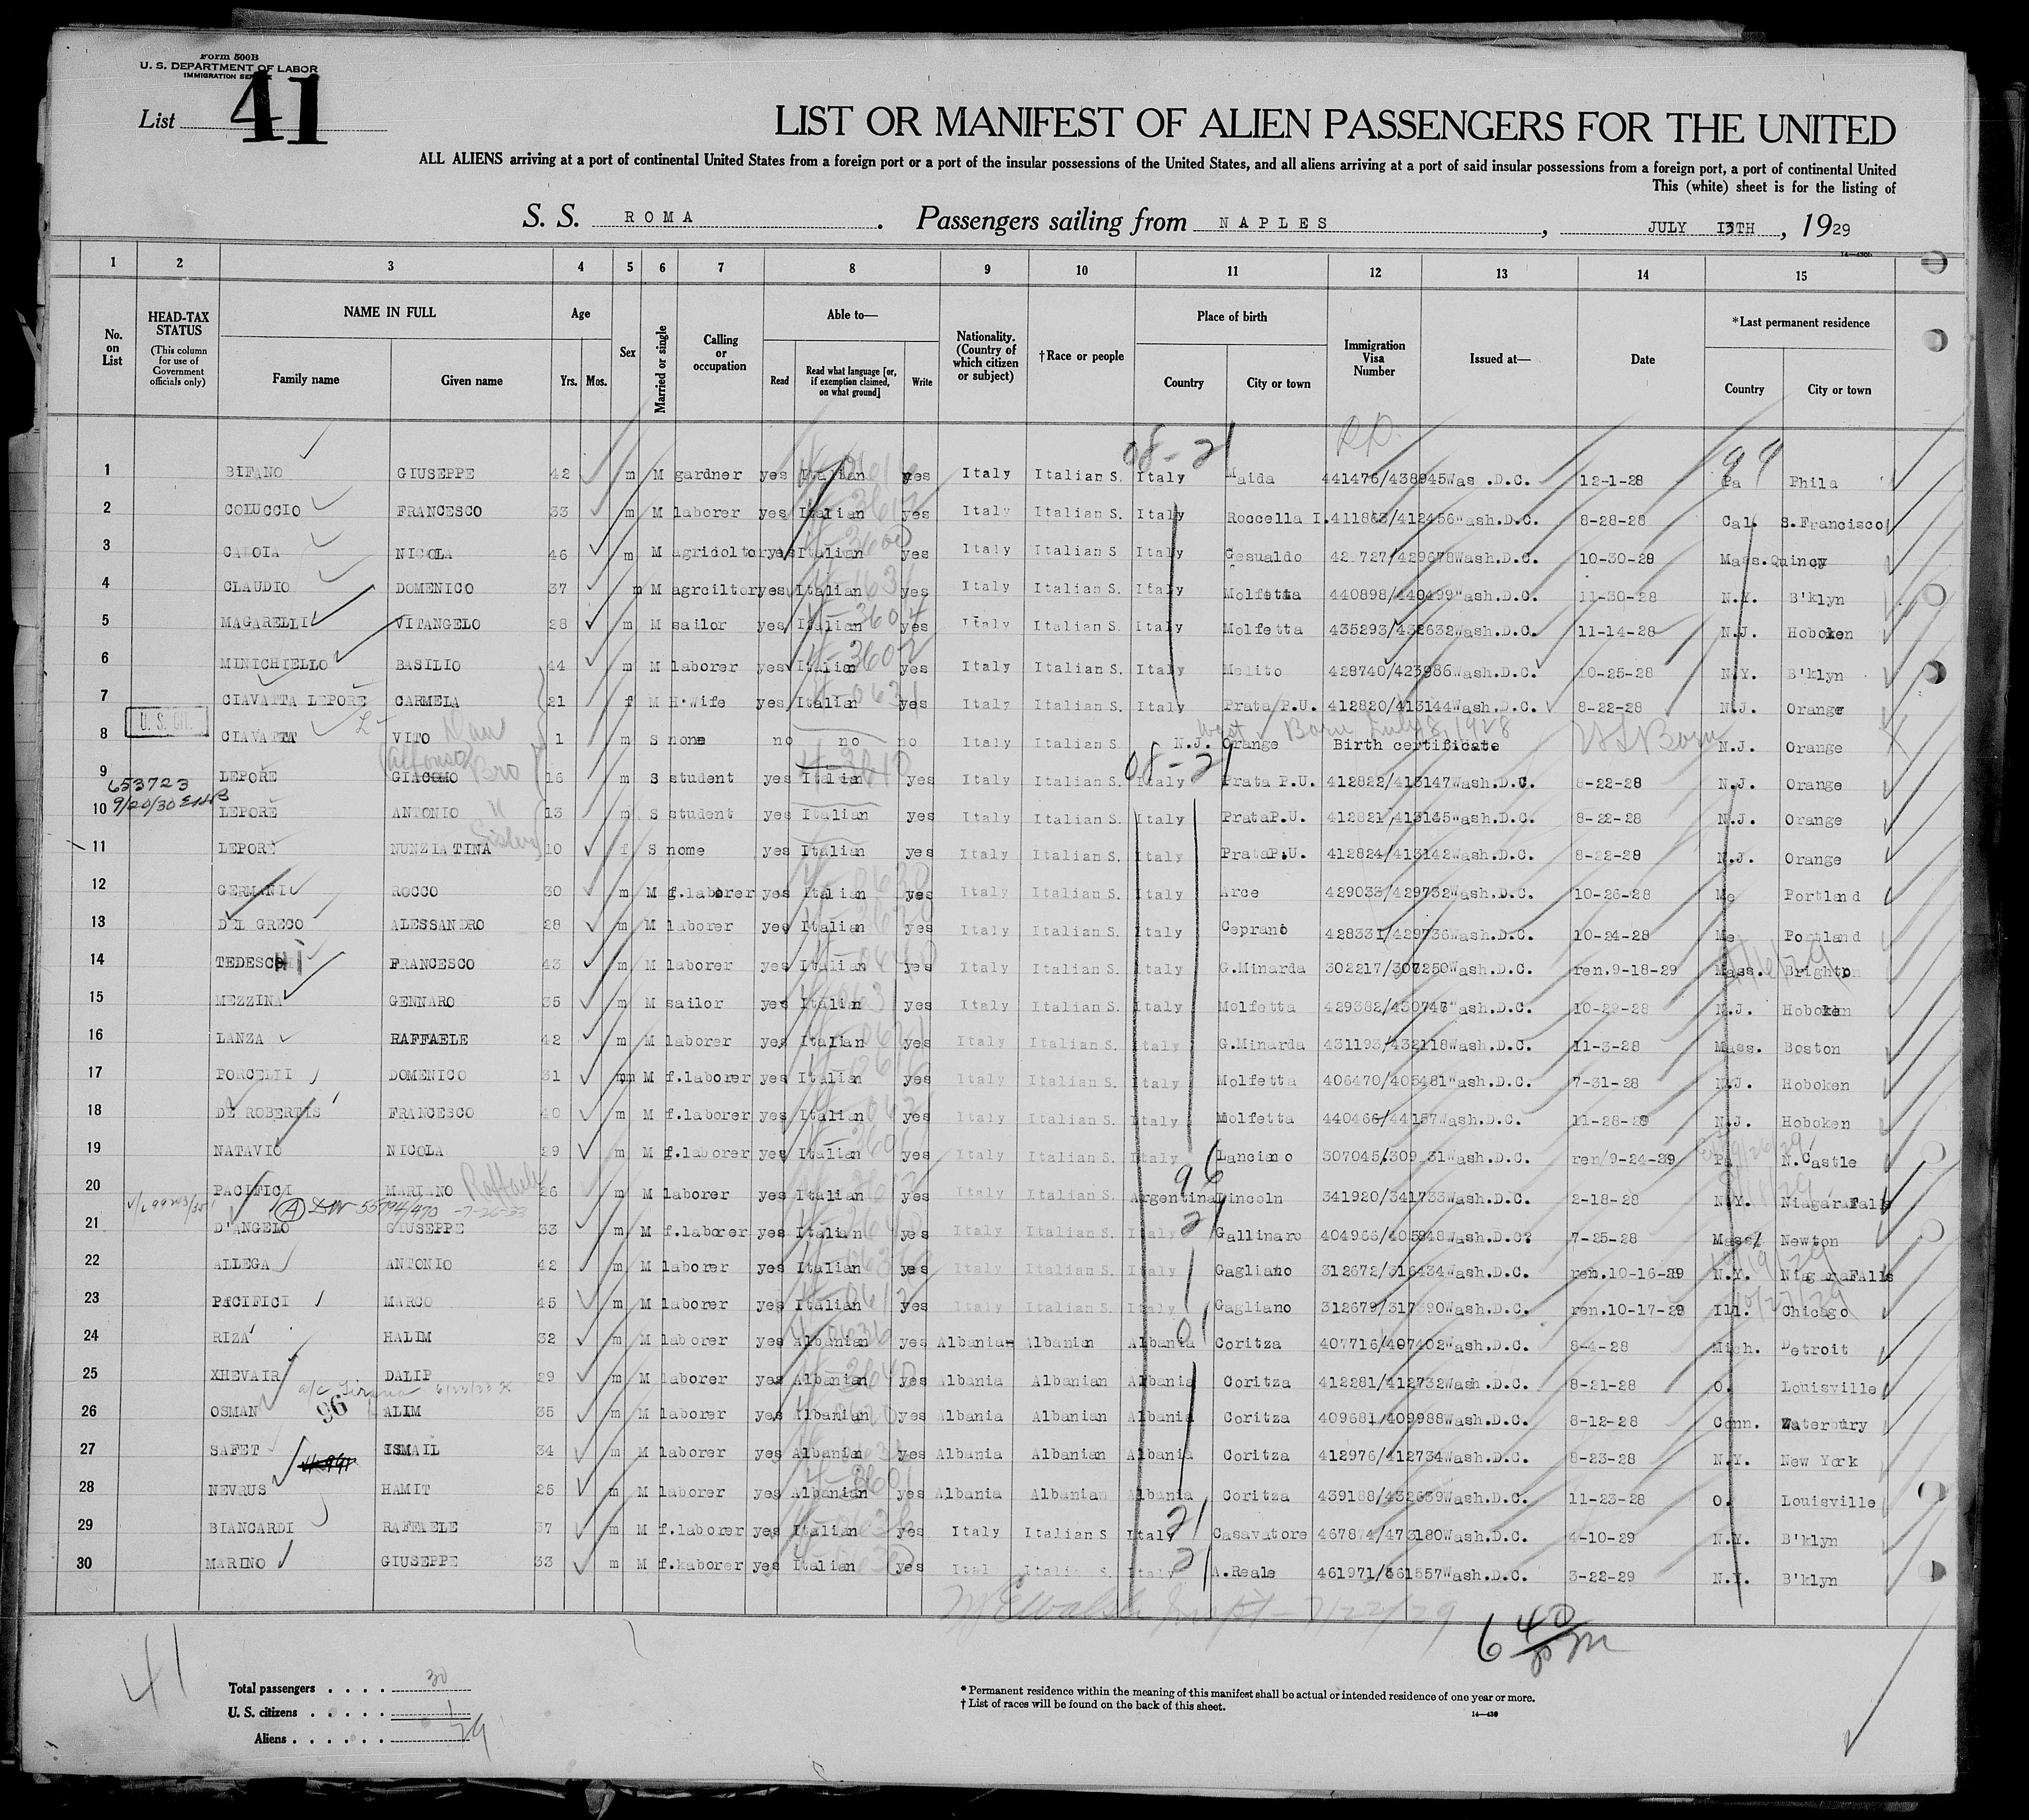 Form 500B
U. S. DEPARTMENT OF LABOR
IMMIGRATION SERVICE
List 41
LIST OR MANIFEST OF ALIEN PASSENGERS FOR THE UNITED
ALL ALIENS arriving at a port of continental United States from a foreign port or a port of the insular possessions of the United States, and all aliens arriving at a port of said insular possessions from a foreign port, a port of continental United
This (white) sheet is for the listing of
S. S. ROMA. Passengers sailing from NAPLES, JULY 13TH, 1929
1 2 3 4 5 6 7 8 9 10 11 12 13 14 15
No. on List HEAD-TAX STATUS (This column for use of Government officials only) NAME IN FULL Family name Given name Age Yrs. Mos. Sex Married or single Calling or occupation Able to— Read Read what language [or, if exemption claimed, on what ground] Write Nationality. (Country of which citizen or subject) †Race or people Place of birth Country City or town Immigration Visa Number Issued at— Date *Last permanent residence Country City or town
1 BIFANO GIUSEPPE 42 m M gardner yes Italian yes Italy Italian S. Italy Maida 441476/438945 Was .D.C. 12-1-28 Pa Phila
2 COLUCCIO FRANCESCO 33 m M laborer yes Italian yes Italy Italian S. Italy Roccella I. 411863/412456 Wash.D.C. 8-28-28 Cal. S.Francisco
3 CALOIA NICOLA 46 m M agricoltor yes Italian yes Italy Italian S Italy Gesualdo Wash.D.C. 10-30-28 Mass. Quincy
4 CLAUDIO DOMENICO 37 m M agrciltor yes Italian yes Italy Italian S. Italy Molfetta 440898/440499 Wash.D.C. 11-30-28 N.Y. B'klyn
5 MAGARELLI VITANGELO 28 m M sailor yes Italian yes Italy Italian S. Italy Molfetta 435293/432632 Wash.D.C. 11-14-28 N.J. Hoboken
6 MINICHIELLO BASILIO 44 m M laborer yes Italian yes Italy Italian S. Italy Melito 428740/423986 Wash.D.C. 10-25-28 N.Y. B'klyn
7 CIAVATTA LEPORE CARMELA 21 f M H.Wife yes Italian yes Italy Italian S. Italy Prata P.U. 412820/413144 Wash.D.C. 8-22-28 N.J. Orange
U.S. CIT.
8 CIAVATTA VITO 1 m S none no no no Italy Italian S. N.J. West Orange Born July 8, 1928 Birth certificate US Born N.J. Orange
9 LEPORE GIACOMO (Alfonso) Bro 16 m S student yes Italian yes Italy Italian S. Italy Prata P.U. 412822/413147 Wash.D.C. 8-22-28 N.J. Orange
653723
9/20/30
10 LEPORE ANTONIO " 13 m S student yes Italian yes Italy Italian S. Italy PrataP.U. 412821/413145 Wash.D.C. 8-22-28 N.J. Orange
11 LEPORE NUNZIATINA Sister 10 f S nome yes Italian yes Italy Italian S. Italy PrataP.U. 412824/413142 Wash.D.C. 8-22-28 N.J. Orange
12 GERMANI ROCCO 30 m M f.laborer yes Italian yes Italy Italian S. Italy Arce 429033/429732 Wash.D.C. 10-26-28 Me Portland
13 DEL GRECO ALESSANDRO 28 m M laborer yes Italian yes Italy Italian S. Italy Ceprano 428331/429736 Wash.D.C. 10-24-28 Me Portland
14 TEDESCHI FRANCESCO 43 m M laborer yes Italian yes Italy Italian S. Italy G.Minarda 302217/307250 Wash.D.C. ren.9-18-29 Mass. Brighton
15 MEZZINA GENNARO 35 m M sailor yes Italian yes Italy Italian S. Italy Molfetta 429382/430746 Wash.D.C. 10-29-28 N.J. Hoboken
16 LANZA RAFFAELE 42 m M laborer yes Italian yes Italy Italian S. Italy G.Minarda 431193/432118 Wash.D.C. 11-3-28 Mass. Boston
17 PORCELLI DOMENICO 31 m M f.laborer yes Italian yes Italy Italian S. Italy Molfetta 406470/405481 Wash.D.C. 7-31-28 N.J. Hoboken
18 DE ROBERTIS FRANCESCO 40 m M f.laborer yes Italian yes Italy Italian S. Italy Molfetta 440466/44157 Wash.D.C. 11-28-28 N.J. Hoboken
19 NATAVIO NICOLA 29 m M f.laborer yes Italian yes Italy Italian S. Italy Lanciano Wash.D.C. ren/9-24-29 Pa N.Castle
20 PACIFICI MARIANO Raffaele 26 m M laborer yes Italian yes Italy Italian S. Argentina Lincoln 341920/341733 Wash.D.C. 2-18-28 N.Y. Niagara Falls
55794/470 -7-26-33
21 D'ANGELO GIUSEPPE 33 m M f.laborer yes Italian yes Italy Italian S. Italy Gallinaro 404966/405848 Wash.D.C? 7-25-28 Mass. Newton
22 ALLEGA ANTONIO 42 m M laborer yes Italian yes Italy Italian S. Italy Gagliano 312672/316434 Wash.D.C. ren.10-16-29 N.Y. NiagaraFAlls
23 PACIFICI MARCO 45 m M laborer yes Italian yes Italy Italian S. Italy Gagliano 312679/317390 Wash.D.C. ren.10-17-29 Ill. Chicago
24 RIZA HALIM 32 m M laborer yes Albanian yes Albania- Albanian Albania Coritza 407716/407402 Wash.D.C. 8-4-28 Mich. Detroit
25 XHEVAIR DALIP 29 m M laborer yes Albanian yes Albania Albanian Albania Coritza 412281/412732 Wash.D.C. 8-21-28 O. Louisville
26 OSMAN 96 ALIM 35 m M laborer yes Albanian yes Albania Albanian Albania Coritza 409681/409988 Wash.D.C. 8-12-28 Conn. Waterbury
27 SAFET ISMAIL 34 m M laborer yes Albanian yes Albania Albanian Albania Coritza 412976/412734 Wash.D.C. 8-23-28 N.Y. New York
28 NEVRUS HAMIT 25 m M laborer yes Albanian yes Albania Albanian Albania Coritza 439188/432639 Wash.D.C. 11-23-28 O. Louisville
29 BIANCARDI RAFFAELE 37 m M f.laborer yes Italian yes Italy Italian S Italy Casavatore 467874/473180 Wash.D.C. 4-10-29 N.Y. B'klyn
30 MARINO GIUSEPPE 33 m M f.kaborer yes Italian yes Ital Italian S. Italy A.Reale 461971/461557 Wash.D.C. 3-22-29 N.Y. B'klyn
7/22/29
41
Total passengers . . . . 30
U. S. citizens . . . . . 1
Aliens . . . . . . 29
* Permanent residence within the meaning of this manifest shall be actual or intended residence of one year or more.
† List of races will be found on the back of this sheet.
14—430